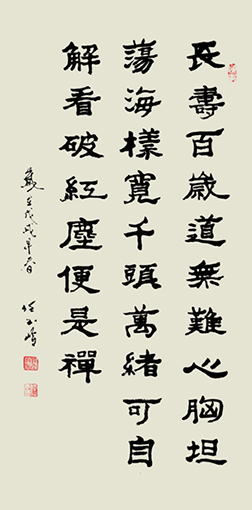 長壽百歲道無難心胸坦
蕩海樣寬千頭萬緒可自
解看破紅塵便是禪
歲戊戌早春